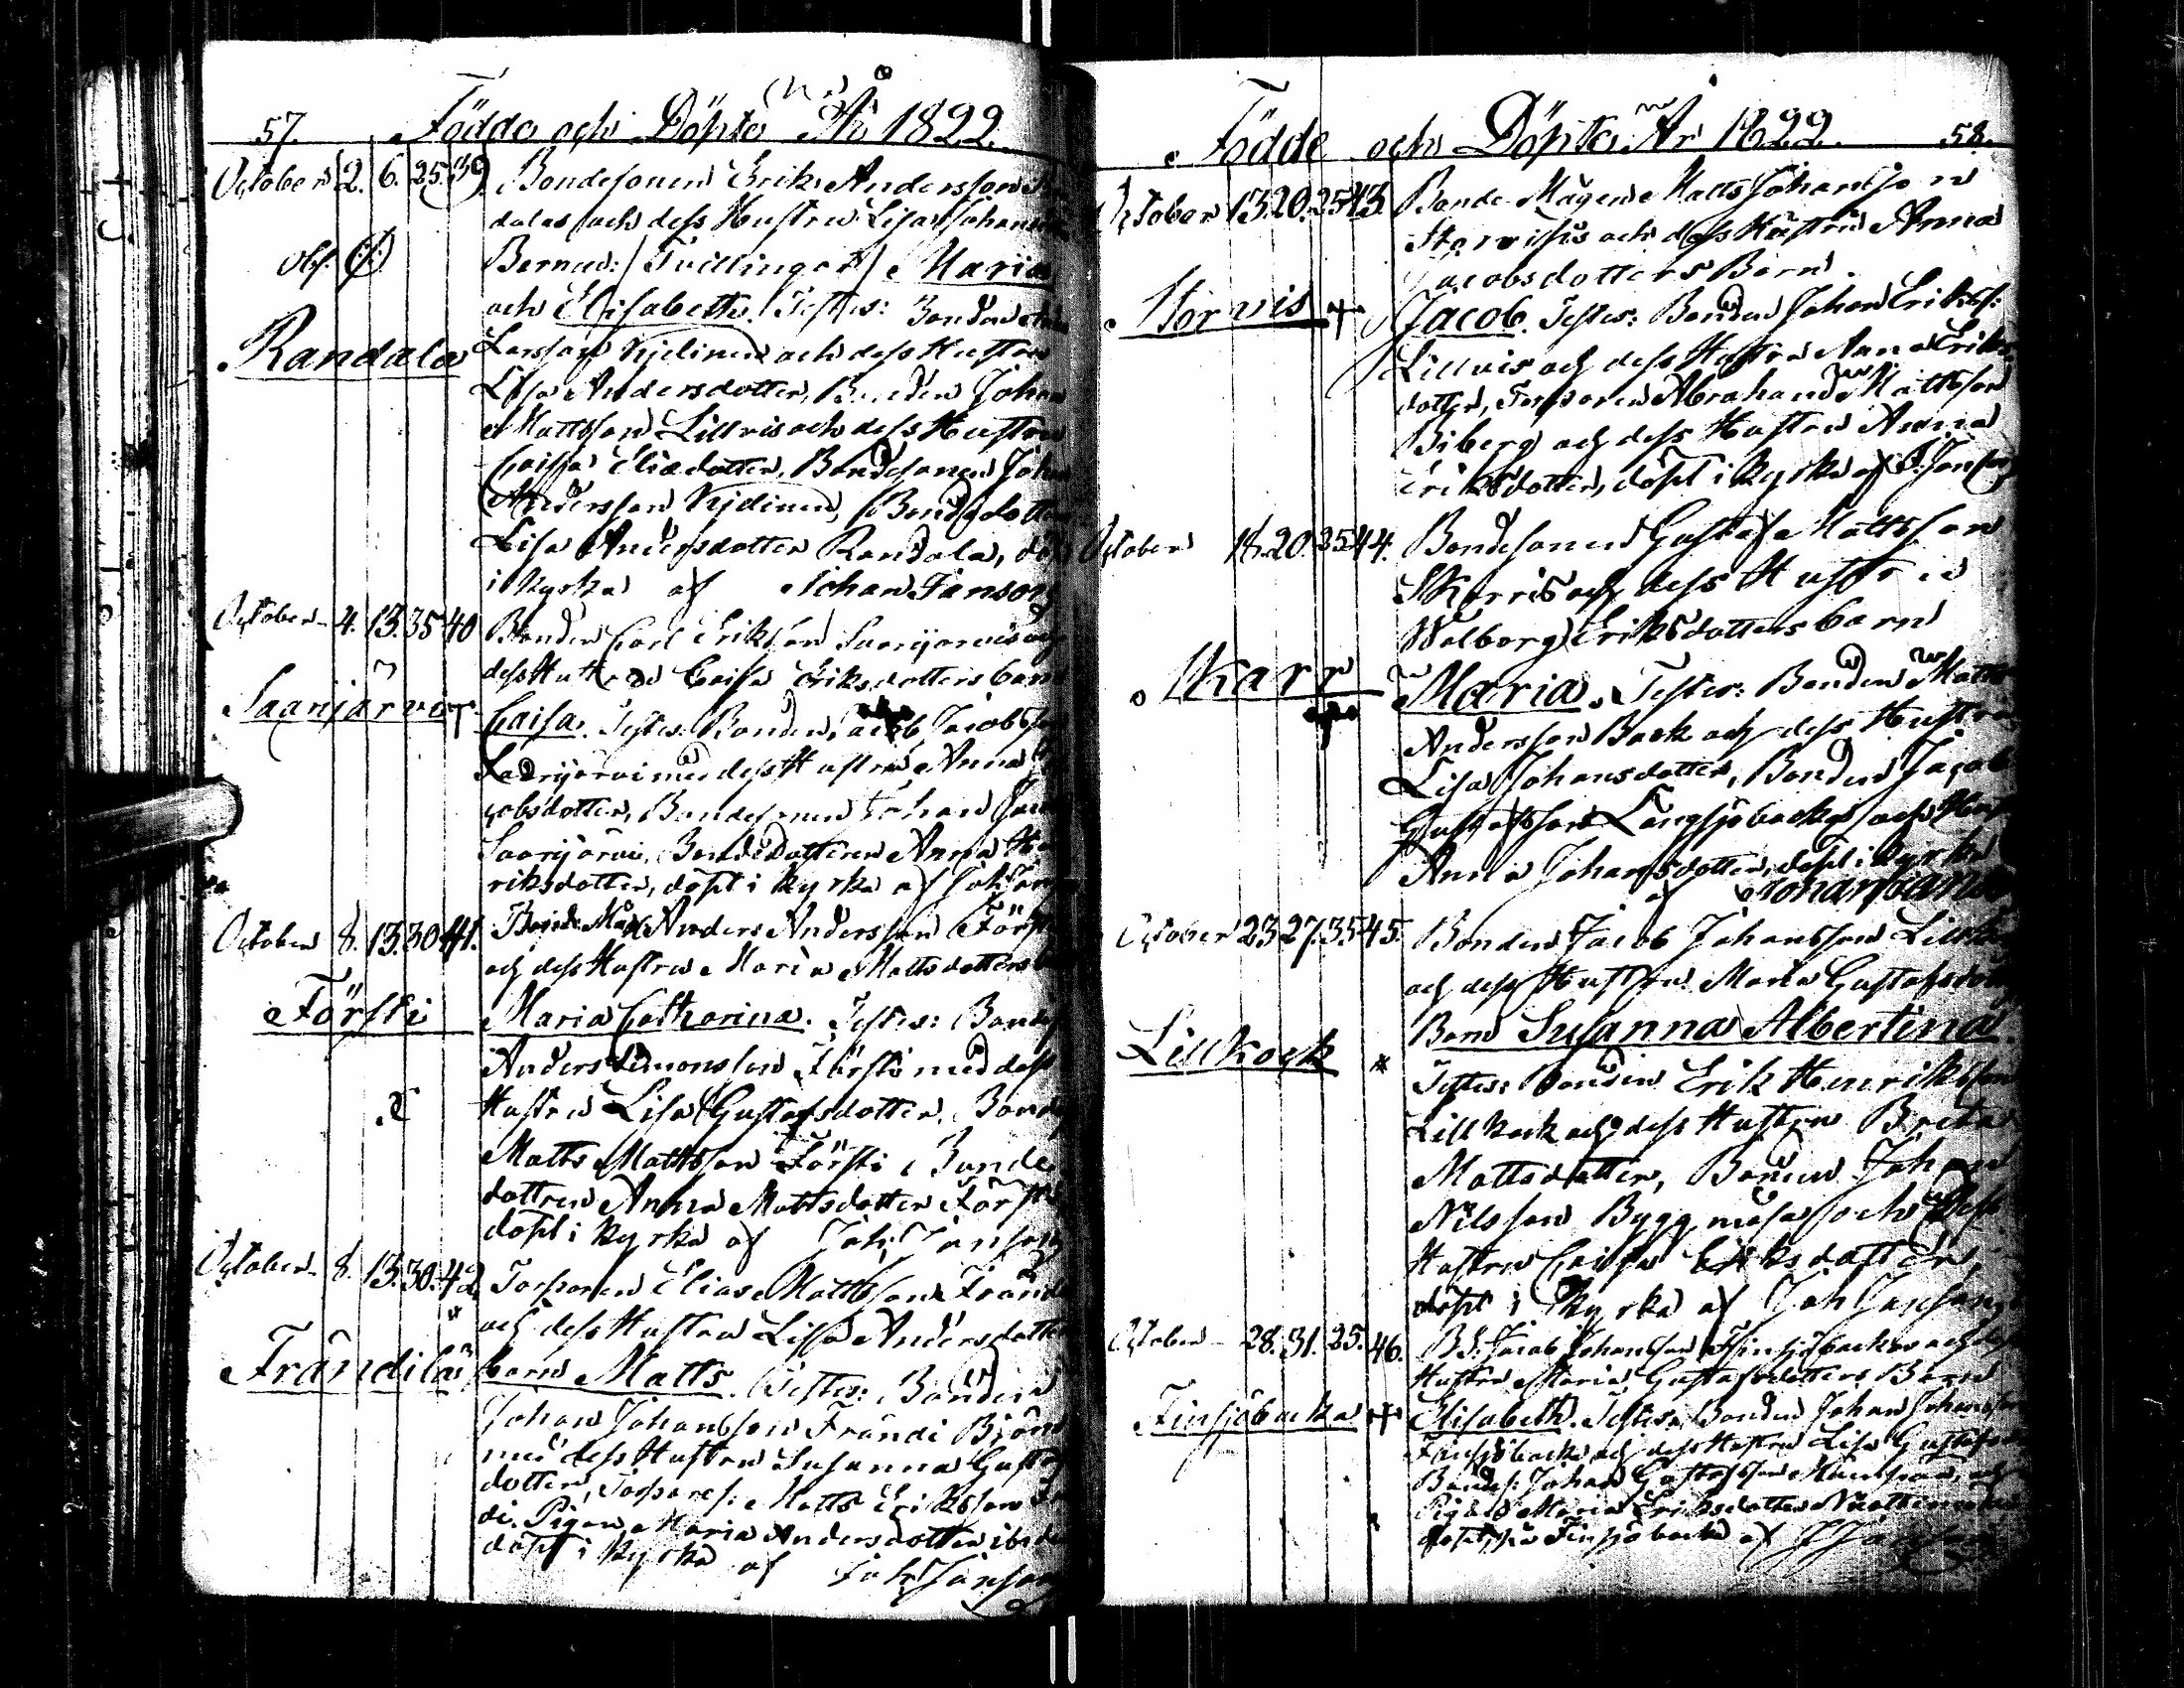 57. Födde och Döpte År 1822.
October 2. 6. 25. 39. Bondesonen Eriks Andersson
dalas och dess Hustru Lisa Johansdr
obs. Bernen: / Tvillingar / Maria
och Elisabetha. Testes: Bonden
Randala Larsson Kjelinen och dess Hustru
Lisa Andersdotter, Bonden Johan
Mattsson Lillvis och dess Hustru
Caisa Eliædotter, Bondesonen Johan
Andersson Kjelinen, Bondedotter
Lisa Andersdotter Randala, döpt
i kyrka af Johan Janson
October 4. 13. 35 40 Bonden Carl Eriksson Saarijärvi och
dess Hustru Caisa Eriksdotters barn
Saarijärvi Caisa. Testes: Bonden Jacob Jacobsson
Saarijärvi med dess Hustru Anna
cobsdotter, Bondesonen Johan
Saarijärvi, Bondedotteren Anna He
riksdotter, döpt i kyrka af Joh Janson
October 8. 13. 30 41. Bonde Mågen Anders Andersson Försti
och dess Hustru Maria Mattsdotters
Försti Maria Catharina. Testes: Bonden
Anders Simonsson Försti med dess
Hustru Lisa Gustafsdotter. Bonden
Matts Mattsson Försti, Bonde
dottren Anna Mattsdotter Försti
döpt i kyrka af Joh: Janson
October 8. 13. 30. 42 Torparen Elias Mattsson Frändi
och dess Hustru Lisa Andersdotter
Frändilä barn Matts. Testes: Bonden
Johan Johansson Frändi Björn
med dess Hustru Susanna Gustaf
dotter, Torpares: Matts Eriksson Frän
di. Pigan Maria Andersdotter ibid
döpt i kyrka af Joh Janson
Födde och Döpte År 1822. 58.
October 13. 20. 25 43. Bonde Mågen Matts Johansson
Storviss och dess Hustru Anna
Jacobsdotters Barn.
Storvis + Jacob. Testes: Bonden Johan Eriks:
Lillvis och dess Hustru Anna Eriks
dotter, Torparen Abraham Mattsson
Biberg och dess Hustru Anna
Eriksdotter, döpt i kyrka af J: Janson
October 18. 20. 35 44. Bondesonen Gustaf Mattsson
Skarris och dess Hustru
Walborg Eriksdotters barn
Skarr Maria. Testes: Bonden Matts
Andersson Back och dess Hustru
Lisa Johansdotter, Bonden Jacob
Gustafsson Långsjöbacka och Hust
Anna Johansdotter, döpt i kyrka
af Johan Janson
October 23 27. 35 45. Bonden Jacob Johansson Lillkock
och dess Hustru Maria Gustafsdotters
Barn Susanna Albertina.
Lillkock * Testes: Bonden Erik Henriksson
Lillkock och dess Hustru Breta
Mattsdotter, Bonden Johan
Nilsson Byggmäsas och dess
Hustru Caisa Eriksdotter,
döpt i kyrka af Joh Janson
October 28. 31. 25. 46. B.S: Jacob Johansson Finsjöbacka och dess
Hustru Maria Gustafsdotters Barn
Finsjöbacka + Elisabeth. Testes: Bonden Johan Johansson
Finsjöbacka och dess Hustru Lisa Gustafsd
Bondes: Johan Gustafsson och
Pigan Maria Eriksdotter
döpt på Finsjöbacka af J Janson